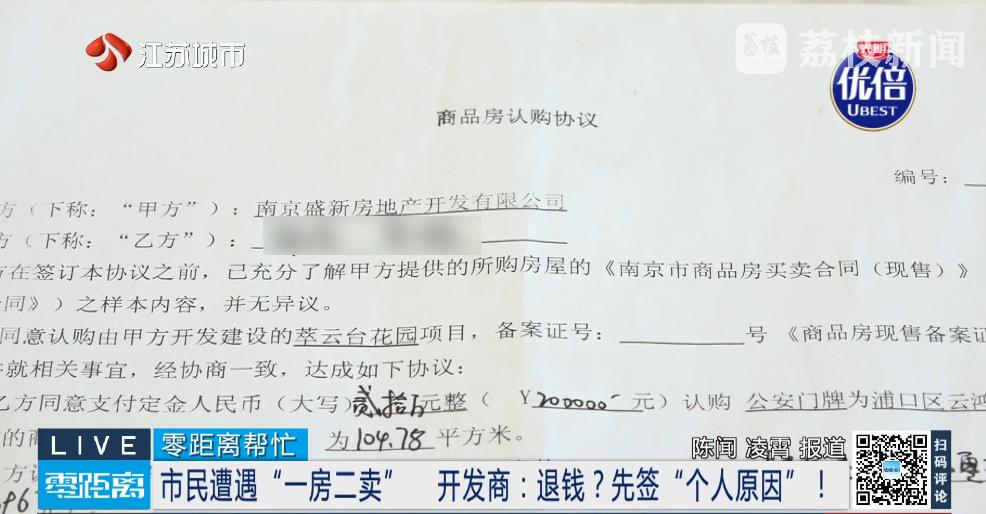 江苏城市
荔枝
荔枝新闻
光明
优倍
UBEST
商品房认购协议
编号：
方（下称：“甲方”）：南京盛新房地产开发有限公司
方（下称：“乙方”）：
方在签订本协议之前，已充分了解甲方提供的所购房屋的《南京市商品房买卖合同（现售）》
合同》）之样本内容，并无异议。
同意认购由甲方开发建设的萃云台花园项目，备案证号： 号《商品房现售备案证
就相关事宜，经协商一致，达成如下协议：
乙方同意支付定金人民币（大写）贰拾万元整（ ￥200000 元）认购 公安门牌为浦口区云鸿
的商
为104.78 平方米。
LIVE
零距离帮忙
陈闻 凌霄 报道
零距离
市民遭遇“一房二卖” 开发商：退钱？先签“个人原因”！
扫码评论